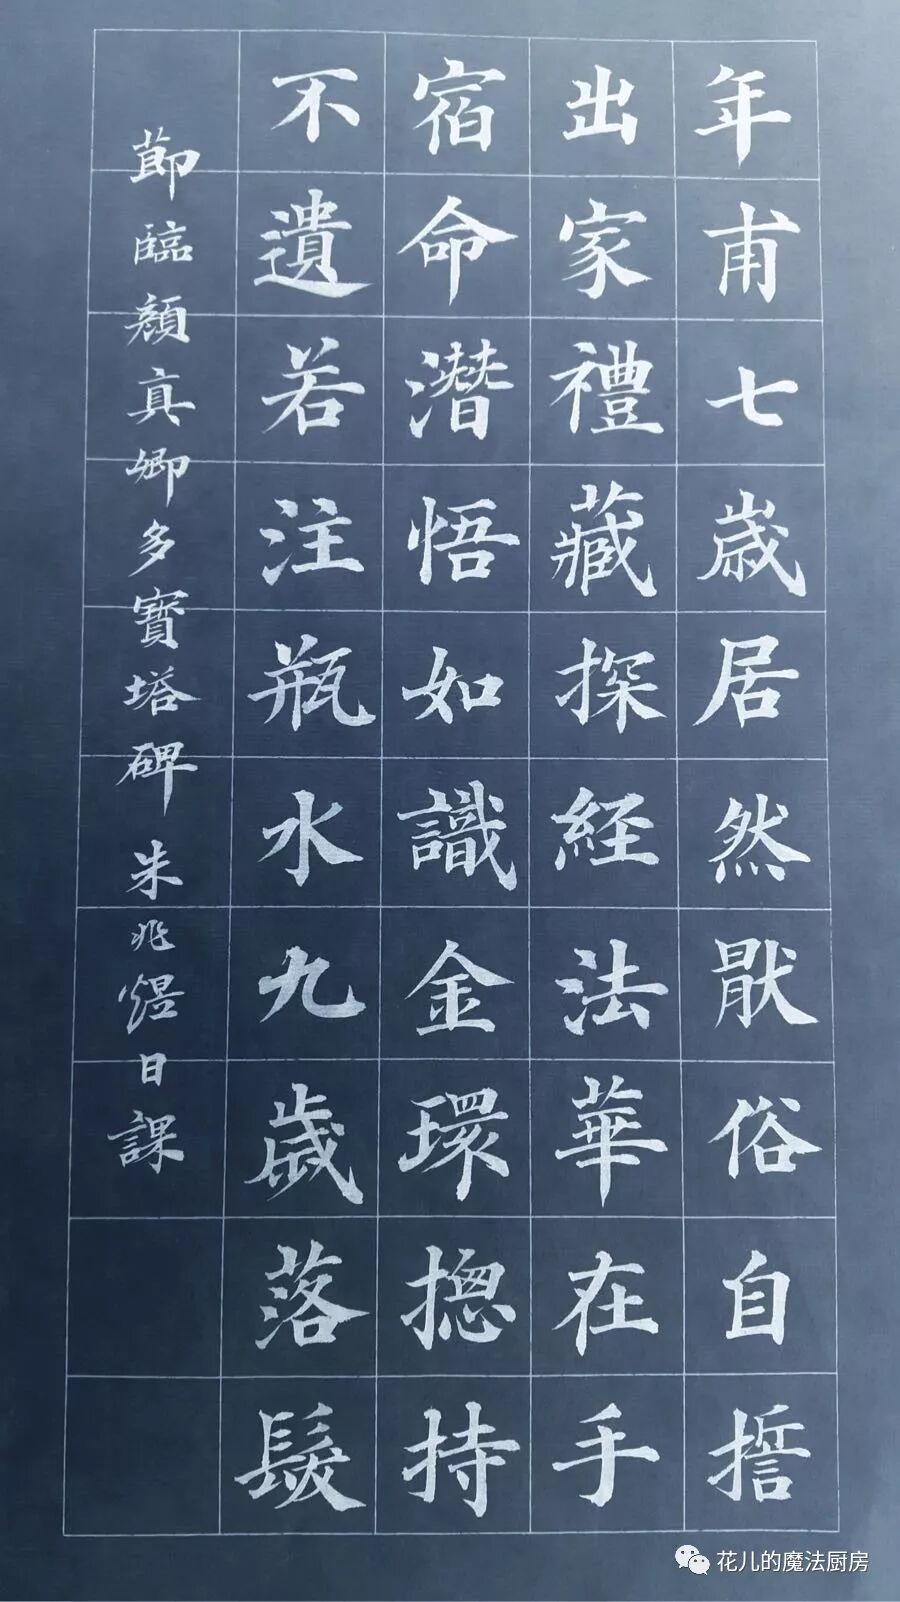 年甫七歲居然猒俗自誓
出家禮藏探經法華在手
宿命潛悟如識金環摠持
不遺若注瓶水九歲落髮
節臨顏真卿多寶塔碑朱兆煜日課
花儿的魔法厨房